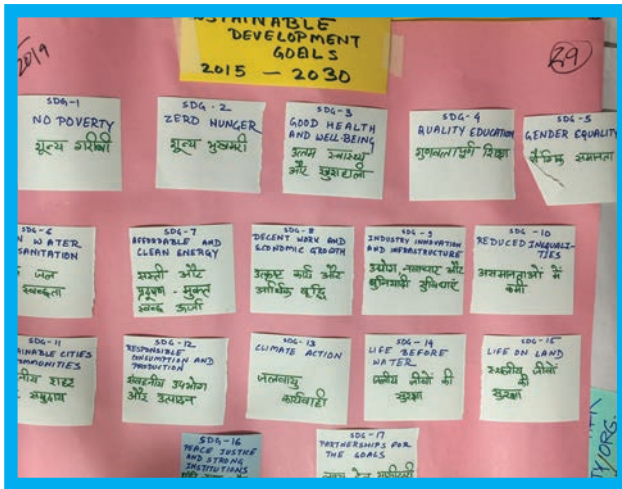 SUSTAINABLE
DEVELOPMENT
GOALS
2015 — 2030
2019
29
SDG-1
NO POVERTY
शून्य गरीबी
SDG-2
ZERO HUNGER
शून्य भुखमरी
SDG-3
GOOD HEALTH
AND WELL-BEING
उत्तम स्वास्थ्य
और खुशहाली
SDG-4
QUALITY EDUCATION
गुणवत्तापूर्ण शिक्षा
SDG-5
GENDER EQUALITY
लैंगिक समानता
SDG-6
N WATER
SANITATION
जल
स्वच्छता
SDG-7
AFFORDABLE AND
CLEAN ENERGY
सस्ती और
प्रदूषण - मुक्त
स्वच्छ ऊर्जा
SDG-8
DECENT WORK AND
ECONOMIC GROWTH
उत्कृष्ट कार्य और
आर्थिक वृद्धि
SDG-9
INDUSTRY INNOVATION
AND INFRASTRUCTURE
उद्योग, नवाचार और
बुनियादी सुविधाएं
SDG-10
REDUCED INEQUALI-
TIES
असमानताओं में
कमी
SDG-11
AINABLE CITIES
OMMUNITIES
नीय शहर
समुदाय
SDG-12
RESPONSIBLE
CONSUMPTION AND
PRODUCTION
संवहनीय उपभोग
और उत्पादन
SDG-13
CLIMATE ACTION
जलवायु
कार्यवाही
SDG-14
LIFE BEFORE
WATER
जलीय जीवों की
सुरक्षा
SDG-15
LIFE ON LAND
स्थलीय जीवों
की
सुरक्षा
SDG-16
PEACE JUSTICE
AND STRONG
INSTITUTIONS
SDG-17
PARTNERSHIPS FOR
THE GOALS
TY/ORG.